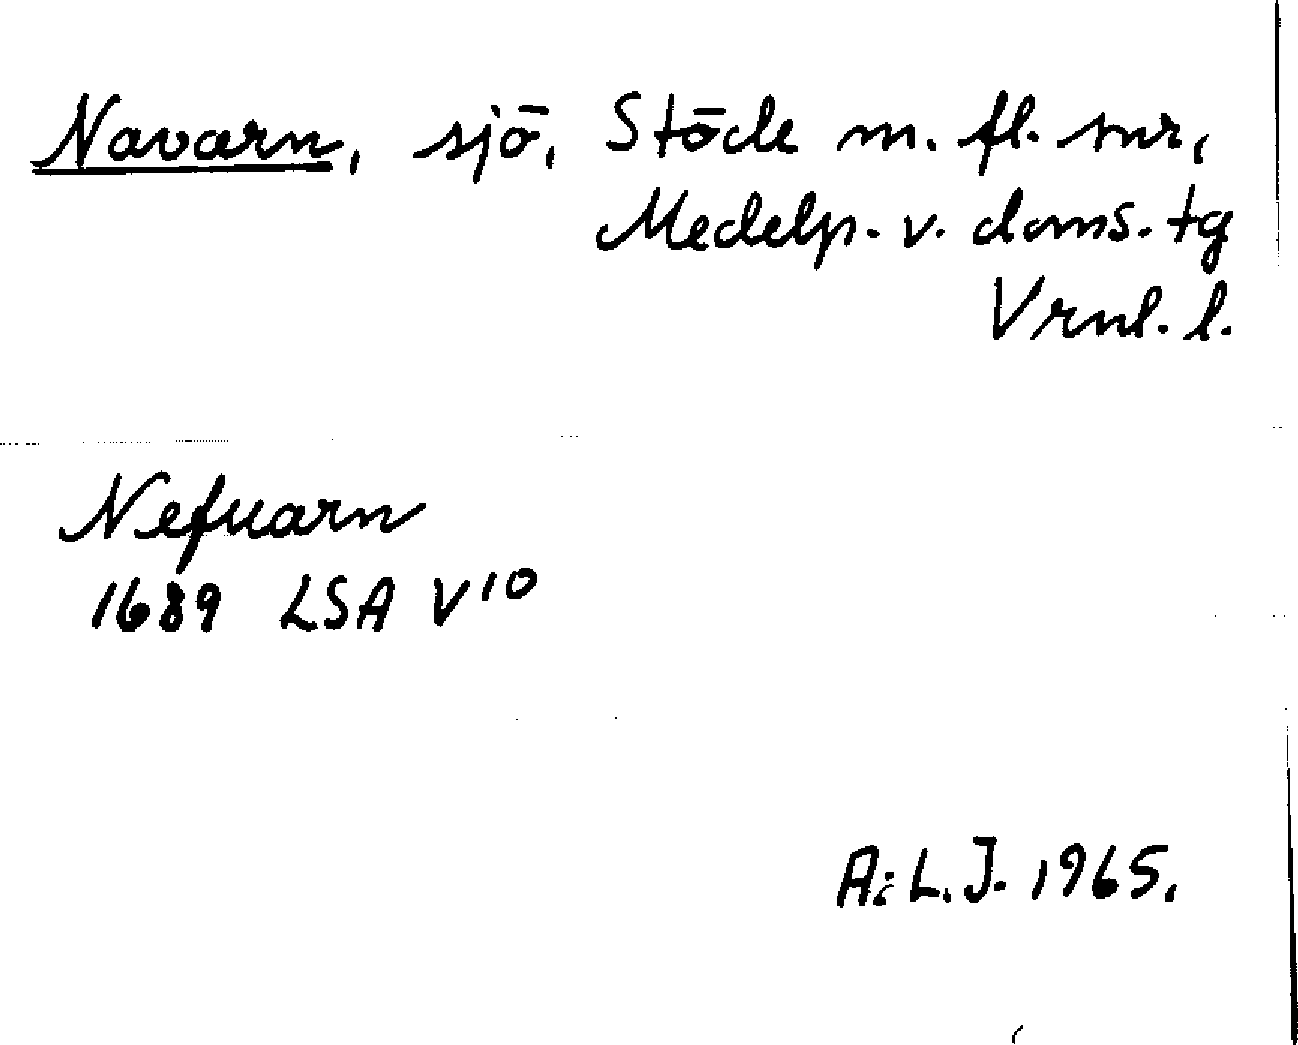 Navarn, sjö, Stöde m. fl. snr,
Medelp. v. doms. tg
Vrnl. l.
Nefuarn
1689 LSA V10
A:L.J. 1965.